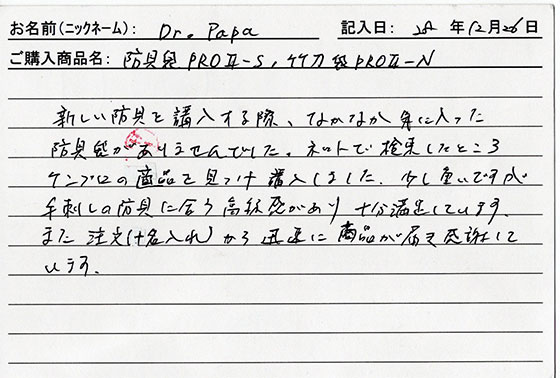 お名前(ニックネーム): Dr. Papa 記入日: 28 年 12月 26日
ご購入商品名: 防具袋 PROⅡ-S, 竹刀袋 PROⅡ-N
新しい防具を購入する際、なかなか気に入った
防具袋がありませんでした。ネットで検索したところ
ケンプロの商品を見つけ購入しました。少し重いですが
手刺しの防具に合う高級感があり十分満足しています。
また注文(+名入れ)から迅速に商品が届き感謝して
います。